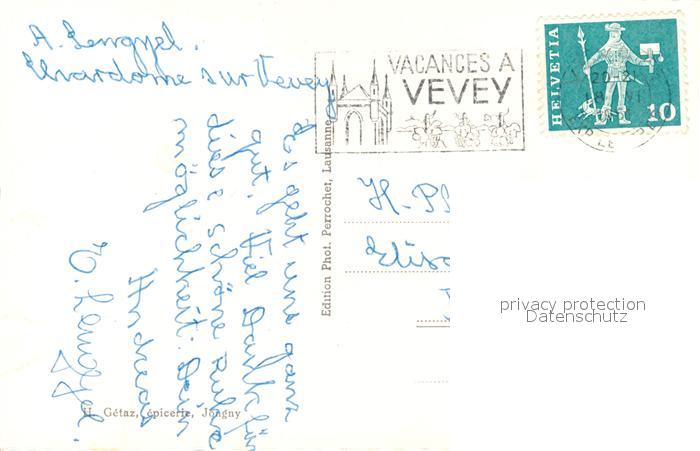 A. Lengyel.
sur Vevey
VACANCES A
VEVEY
HELVETIA
10
Es geht uns ganz
gut. Viel Dank für
diese schöne Ruhe
möglichkeit. Dein
Andreas
Lengyel.
Edition Phot. Perrochet, Lausanne
H. Gétaz, épicerie, Jongny
H. Pf
Elisa
privacy protection
Datenschutz